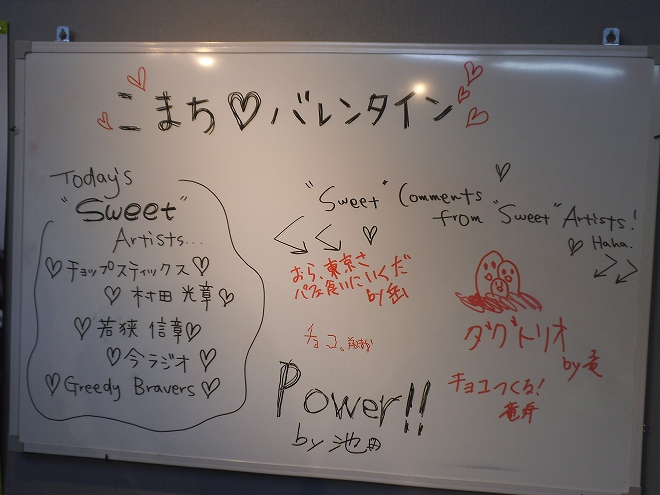 こまち♡バレンタイン
Today's
"Sweet"
Artists...
♡チョップスティックス♡
♡村田 光章♡
♡若狭 信章♡
♡今ラジオ♡
♡Greedy Bravers♡
"Sweet" Comments
from "Sweet" Artists!
Haha.
おら、東京さ
パフェ食いにいくだ
by
チョコ。
Power!!
by 池田
ダグトリオ
by 竜
チョコつくる!